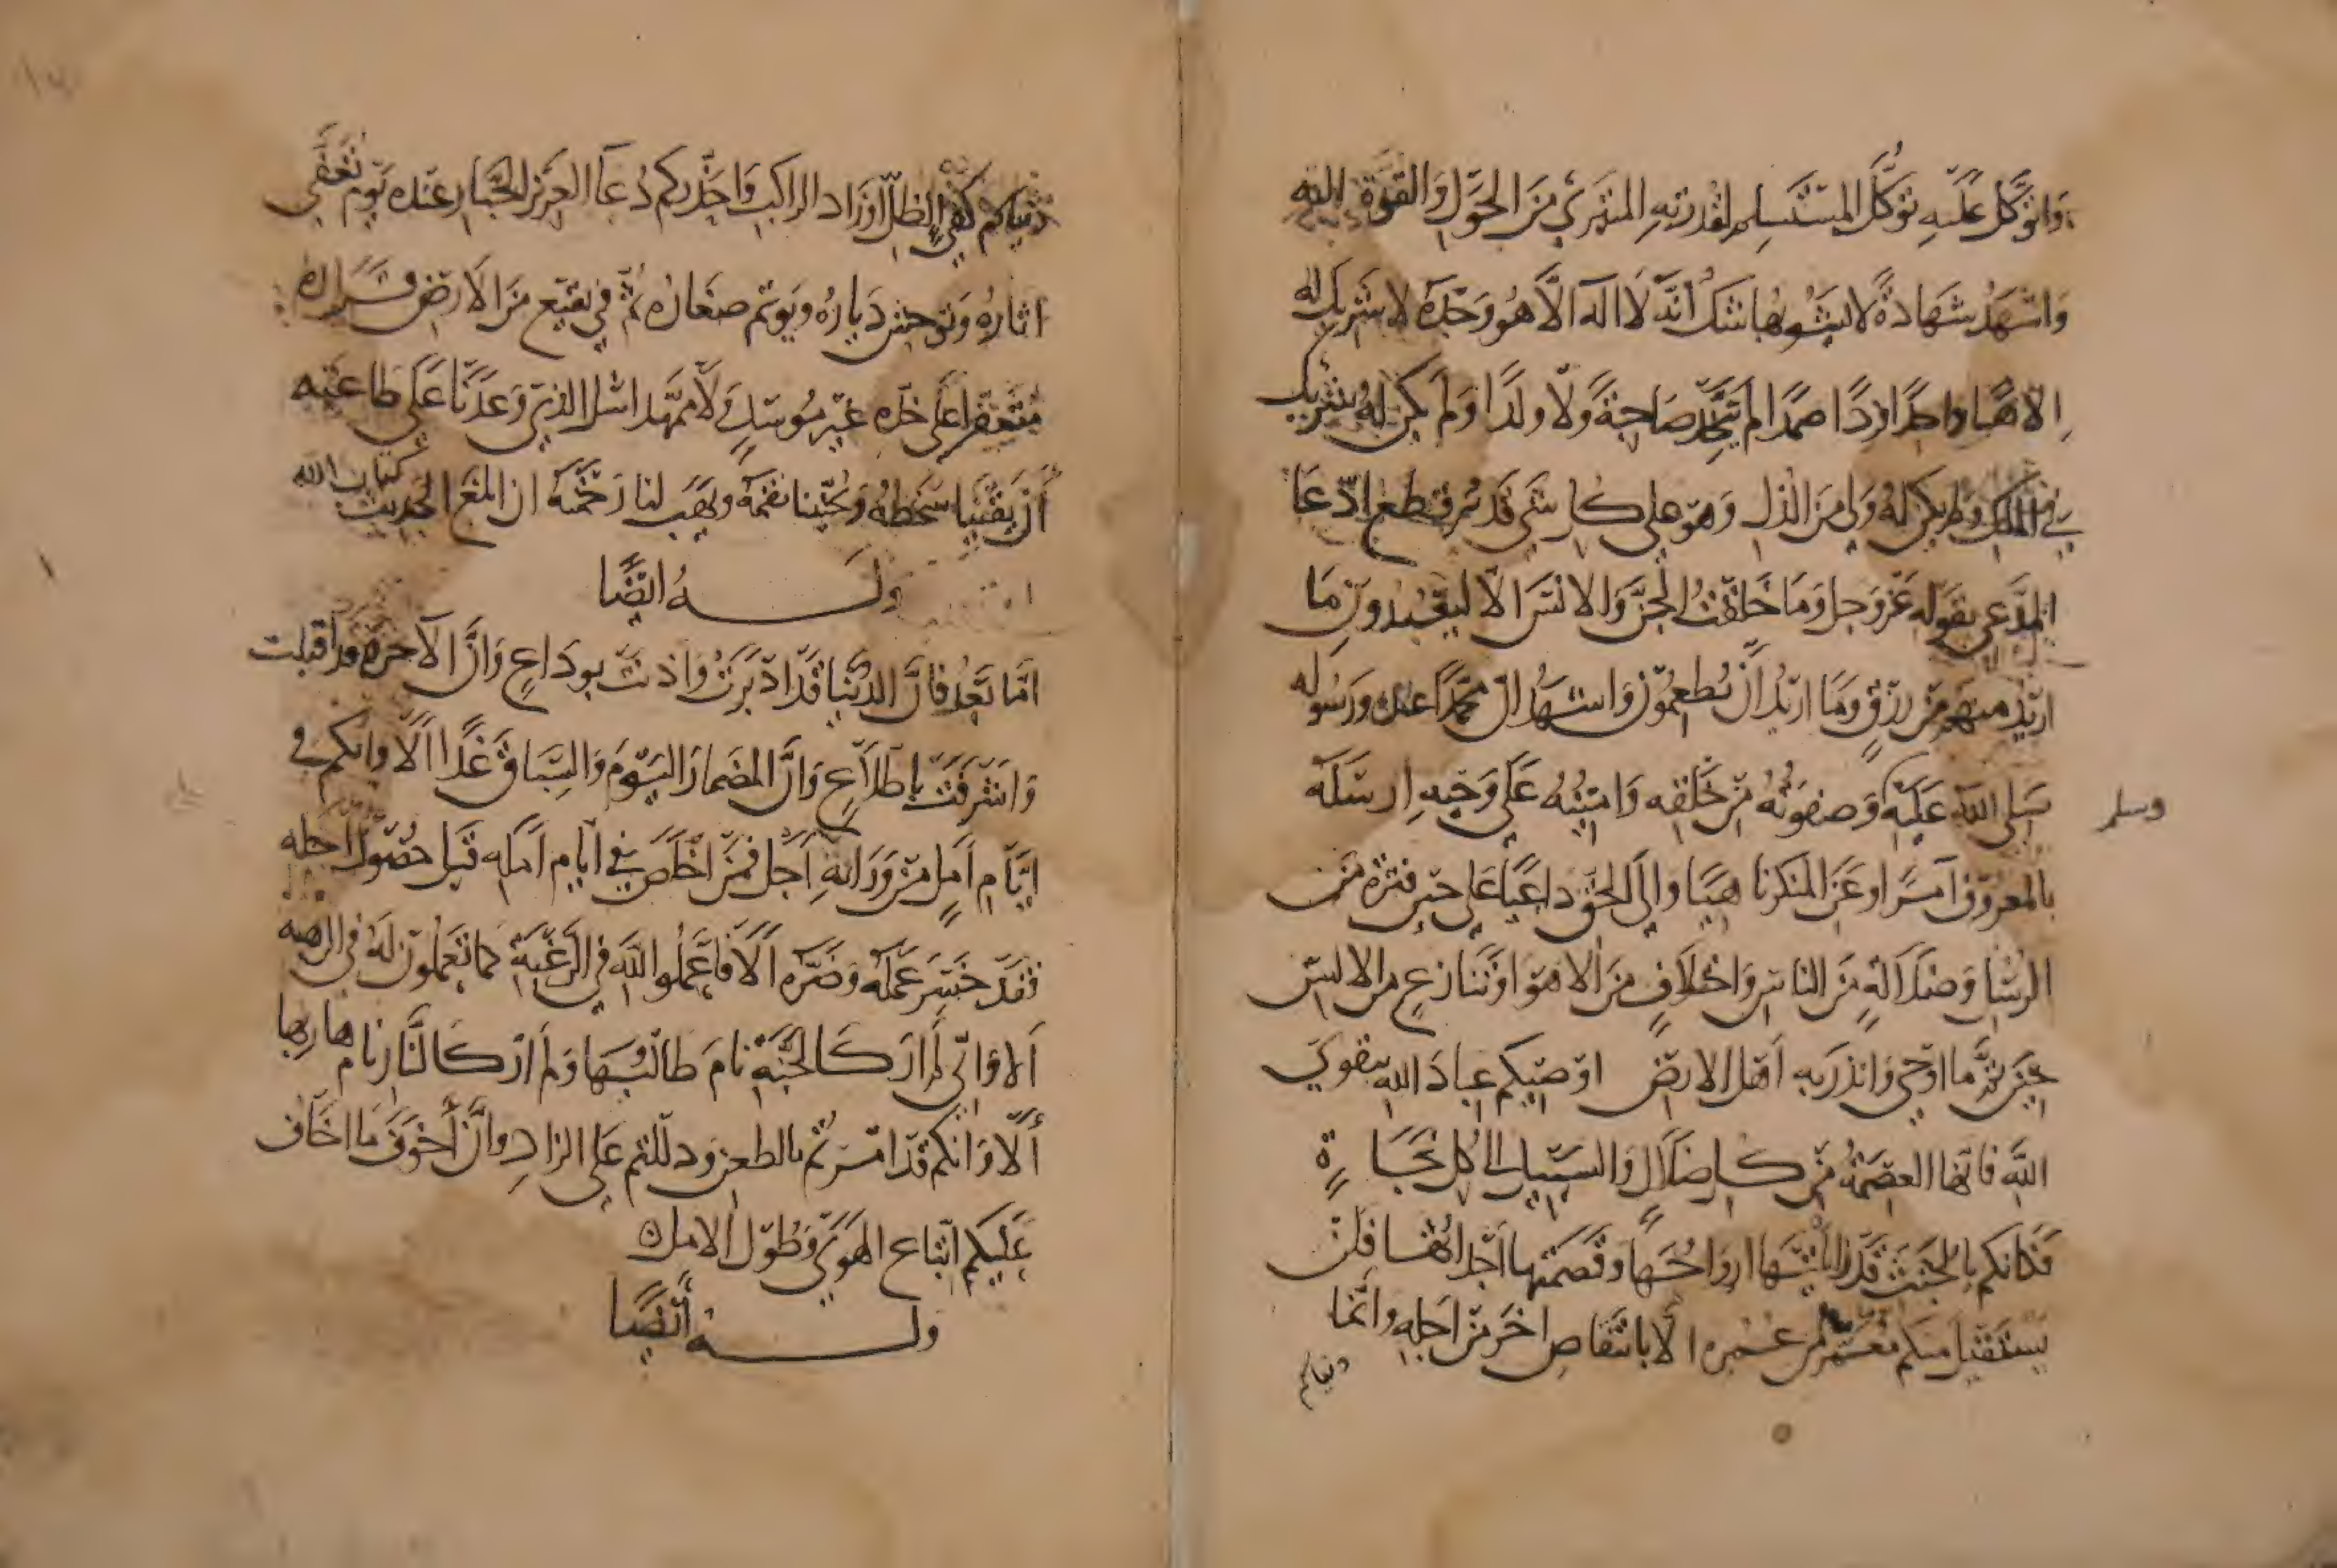 واتوكل عليه توكل المستسلم لقدرته المتبري من الحول والقوة اليه
واشهد شهادة لا يشوبها شك انه لا اله الا هو وحده لا شريك له
الاها واحدا فردا صمدا لم يتخذ صاحبة ولا ولدا ولم يكن له شريك
في الملك ولم يكن له ولي من الذل وهو على كل شي قدير قطع ادعا
المدعي بقوله عز وجل وما خلقت الجن والانس الا ليعبدون ما
اريد منهم من رزق وما اريد ان يطعمون واشهد ان محمدا عبده ورسوله
صلى الله عليه وصفوته من خلقه وامينه على وحيه ارسله
وسلم
بالمعروف آمرا وعن المنكر ناهيا والى الحق داعيا على حين فترة من
الرسل وضلالة من الناس واختلاف من الامور وتنازع من الالسن
حتى تمم به الوحي وانذر به اهل الارض اوصيكم عباد الله بتقوى
الله فانها العصمة من كل ضلال والسبيل الى كل نجاة
فكانكم بالجثث قد زايلتها ارواحها وتضمنتها اجداثها فلن
يستقبل منكم معمر من عمره الا بانتقاص اخر من اجله وانما
دنياكم
دنياكم كفي الظل او زاد الراكب واحذركم دعا العزيز الجبار عبده يوم تعفى
اثاره وتوحش دياره ويوتم صغاره ثم في بقيع من الارض قراره
متعفرا على خده غير موسد ولا ممهد اسل الذي وعدنا على طاعته
أن يقينا سخطه ويجنبنا نقمه ويهب لنا رحمته ان ابلغ الحديث كتاب الله
وله ايضا
اما بعد فان الدنيا قد ادبرت واذنت بوداع وان الآخرة قد اقبلت
واشرفت باطلاع وان المضمار اليوم والسباق غدا الا وانكم في
ايام امل من ورائه اجل فمن اخلص في ايام امله قبل حضور اجله
فقد خسر عمله وضره الا فاعملوا لله في الرغبة كما تعملون له في الرهبه
الا واني لم ار كالجنة نام طالبها ولم ار كالنار نام هاربها
ألا وانكم قد امرتم بالظعن ودللتم على الزاد وان أخوف ما اخاف
عليكم اتباع الهوى وطول الامل
وله أيضا